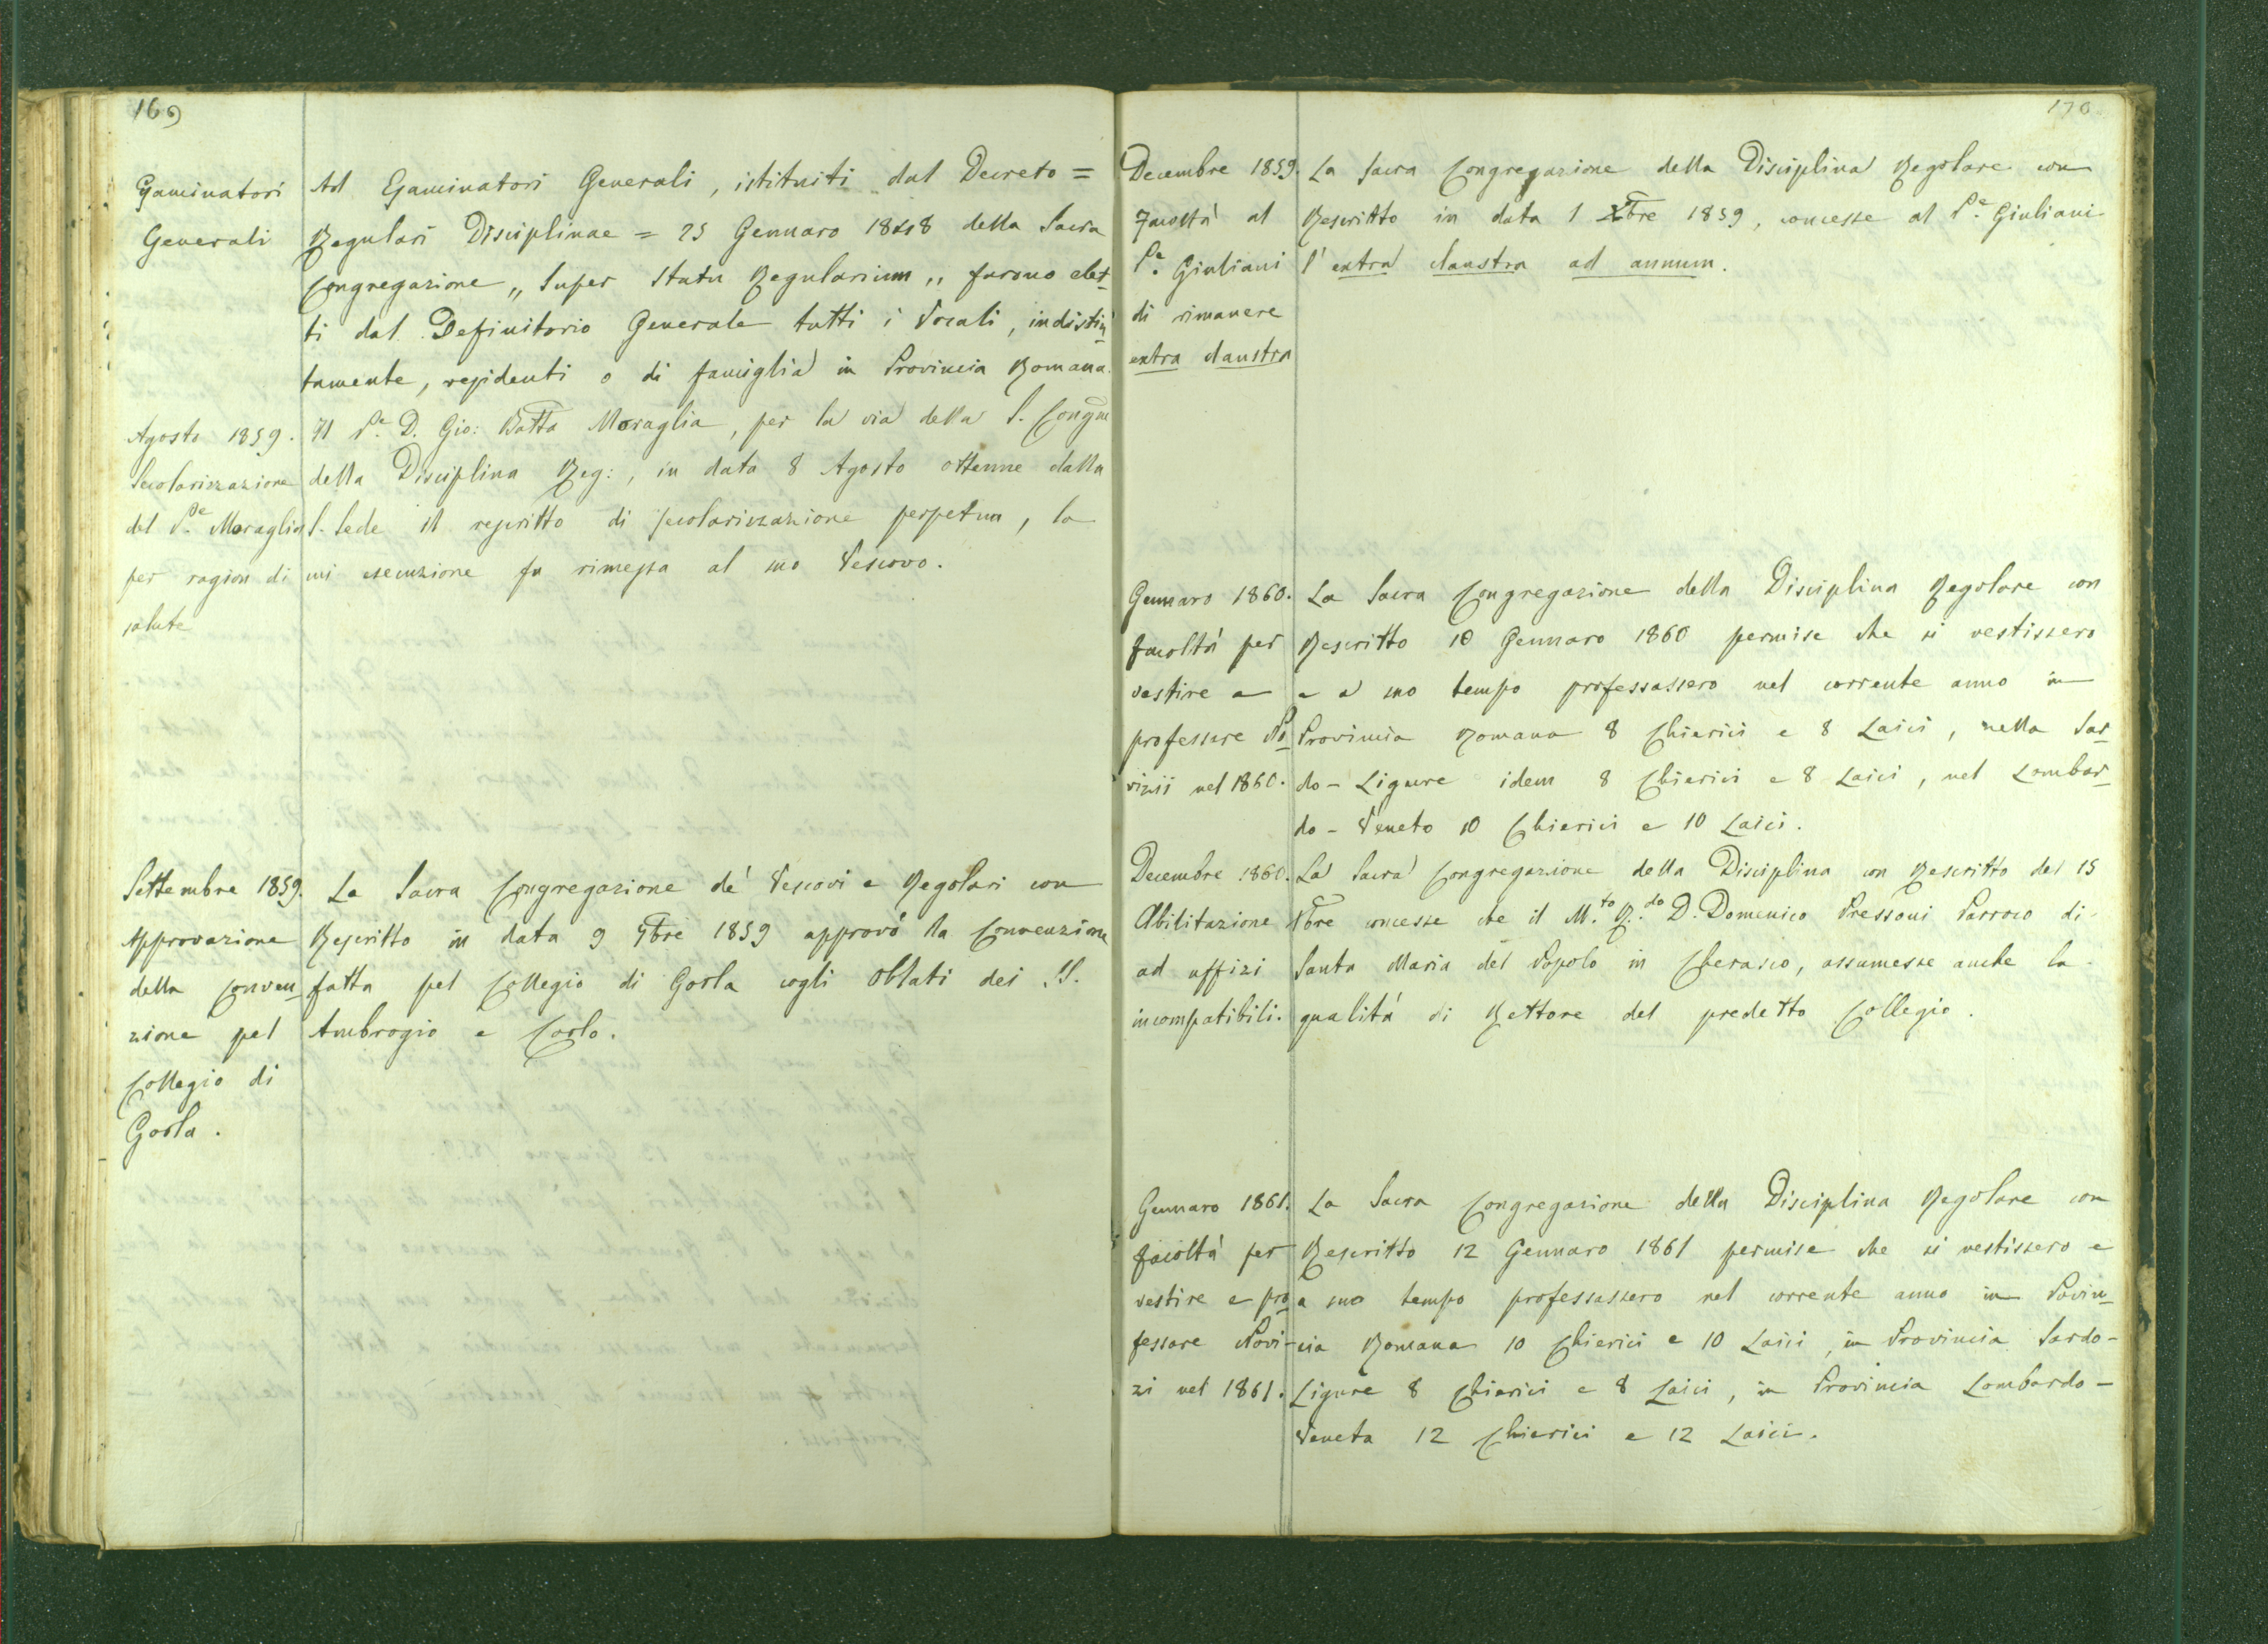 169
Esaminatori
Generali
Ad Esaminatori Generali, istituiti dal Decreto =
Regulari Disciplinae = 25 Gennaro 1848 della Sacra
Congregazione „ Super Statu Regularium „ furono elet-
ti dal Definitorio Generale tutti i Vocali, indistin-
tamente, residenti o di famiglia in Provincia Romana.
Agosto 1859.
Secolarizzazione
del P.e Moraglia
per ragion di
salute
Il P.e D. Gio: Batta Moraglia, per la via della S. Congne
della Disciplina Reg:, in data 8 Agosto ottenne dalla
S. Sede il rescritto di secolarizzazione perpetua, la
cui esecuzione fu rimessa al suo Vescovo.
Settembre 1859.
Approvazione
della Conven-
zione pel
Collegio di
Gorla.
La Sacra Congregazione de' Vescovi e Regolari con
Rescritto in data 9 7bre 1859 approvò la Convenzione
fatta pel Collegio di Gorla cogli Oblati dei SS.
Ambrogio e Carlo.
170
Decembre 1859.
Facoltà al
P.e Giuliani
di rimanere
extra claustra
La Sacra Congregazione della Disciplina Regolare con
Rescritto in data 1 Xbre 1859, concesse al P.e Giuliani
l'extra claustra ad annum.
Gennaro 1860.
facoltà per
vestire e
professare No-
vizii nel 1860.
La Sacra Congregazione della Disciplina Regolare con
Rescritto 10 Gennaro 1860 permise che si vestissero
e a suo tempo professassero nel corrente anno in
Provincia Romana 8 Chierici e 8 Laici, nella Sar-
do-Ligure idem 8 Chierici e 8 Laici, nel Lombar-
do-Veneto 10 Chierici e 10 Laici.
Decembre 1860.
Abilitazione
ad uffizi
incompatibili.
La Sacra Congregazione della Disciplina con Rescritto del 15
Xbre concesse che il M.to R.do D. Domenico Pressoni Parroco di
Santa Maria del Popolo in Cherasco, assumesse anche la
qualità di Rettore del predetto Collegio.
Gennaro 1861.
facoltà per
vestire e pro-
fessare Novi-
zi nel 1861.
La Sacra Congregazione della Disciplina Regolare con
Rescritto 12 Gennaro 1861 permise che si vestissero e
a suo tempo professassero nel corrente anno in Povin-
cia Romana 10 Chierici e 10 Laici, in Provincia Sardo-
Ligure 8 Chierici e 8 Laici, in Provincia Lombardo-
Veneta 12 Chierici e 12 Laici.